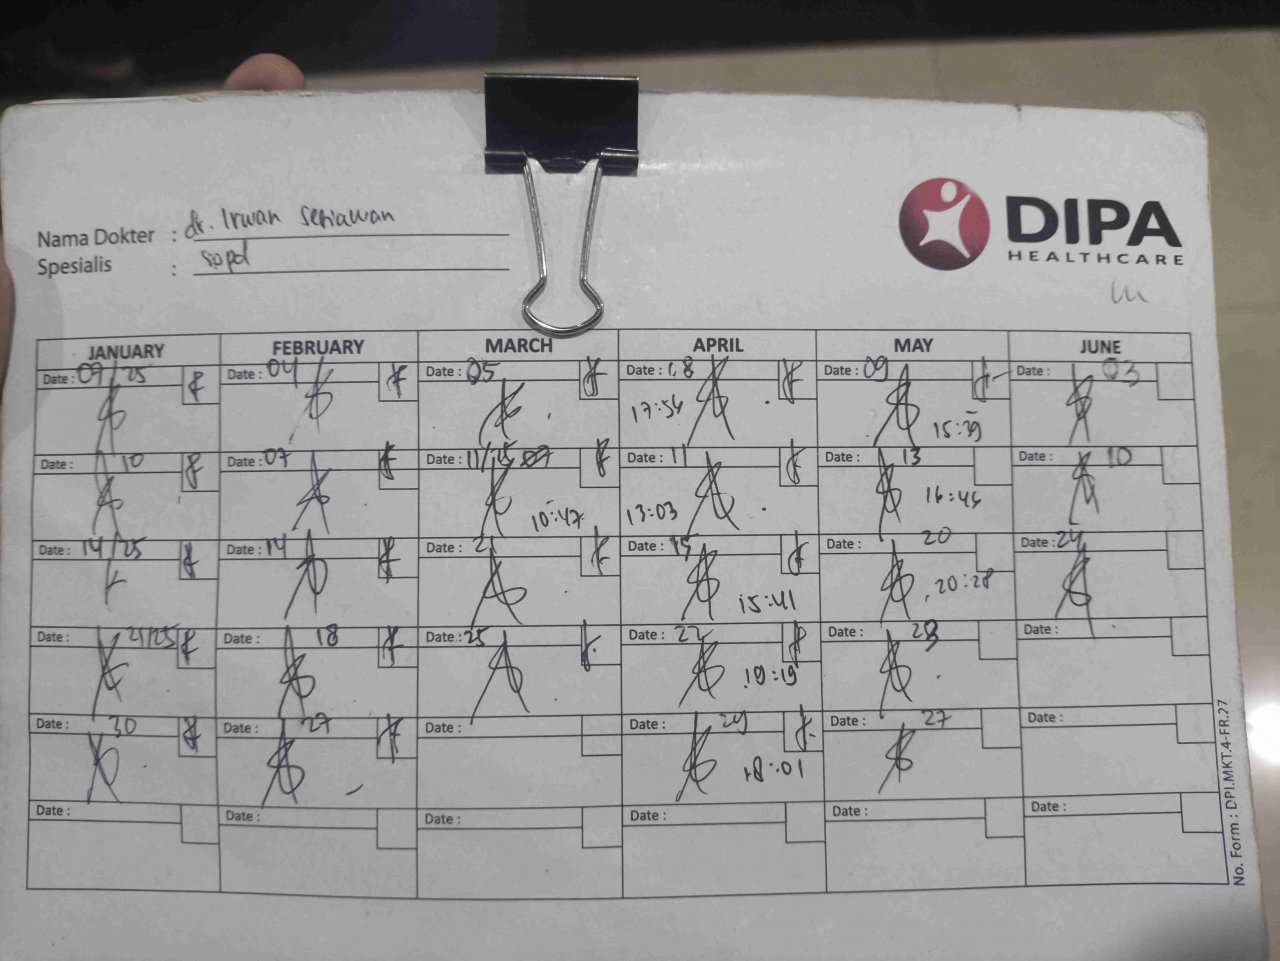 Nama Dokter : dr. Irwan Setiawan
Spesialis : sppd
DIPA
HEALTHCARE
JANUARY FEBRUARY MARCH APRIL MAY JUNE
Date : 09/25 Date : 04 Date : 05 Date : 08 Date : 09 Date : 03
17:54 15:39
Date : 10 Date : 07 Date : 11/ Date : 11 Date : 13 Date : 10
10:47 13:03 16:45
Date : 14/25 Date : 14 Date : 21 Date : 15 Date : 20 Date : 24
15:41 20:28
Date : 21/25 Date : 18 Date : 25 Date : 22 Date : 23 Date :
19:19
Date : 30 Date : 27 Date : Date : 29 Date : 27 Date :
18:01
Date : Date : Date : Date : Date : Date :
No. Form : DPI.MKT.4-FR.27